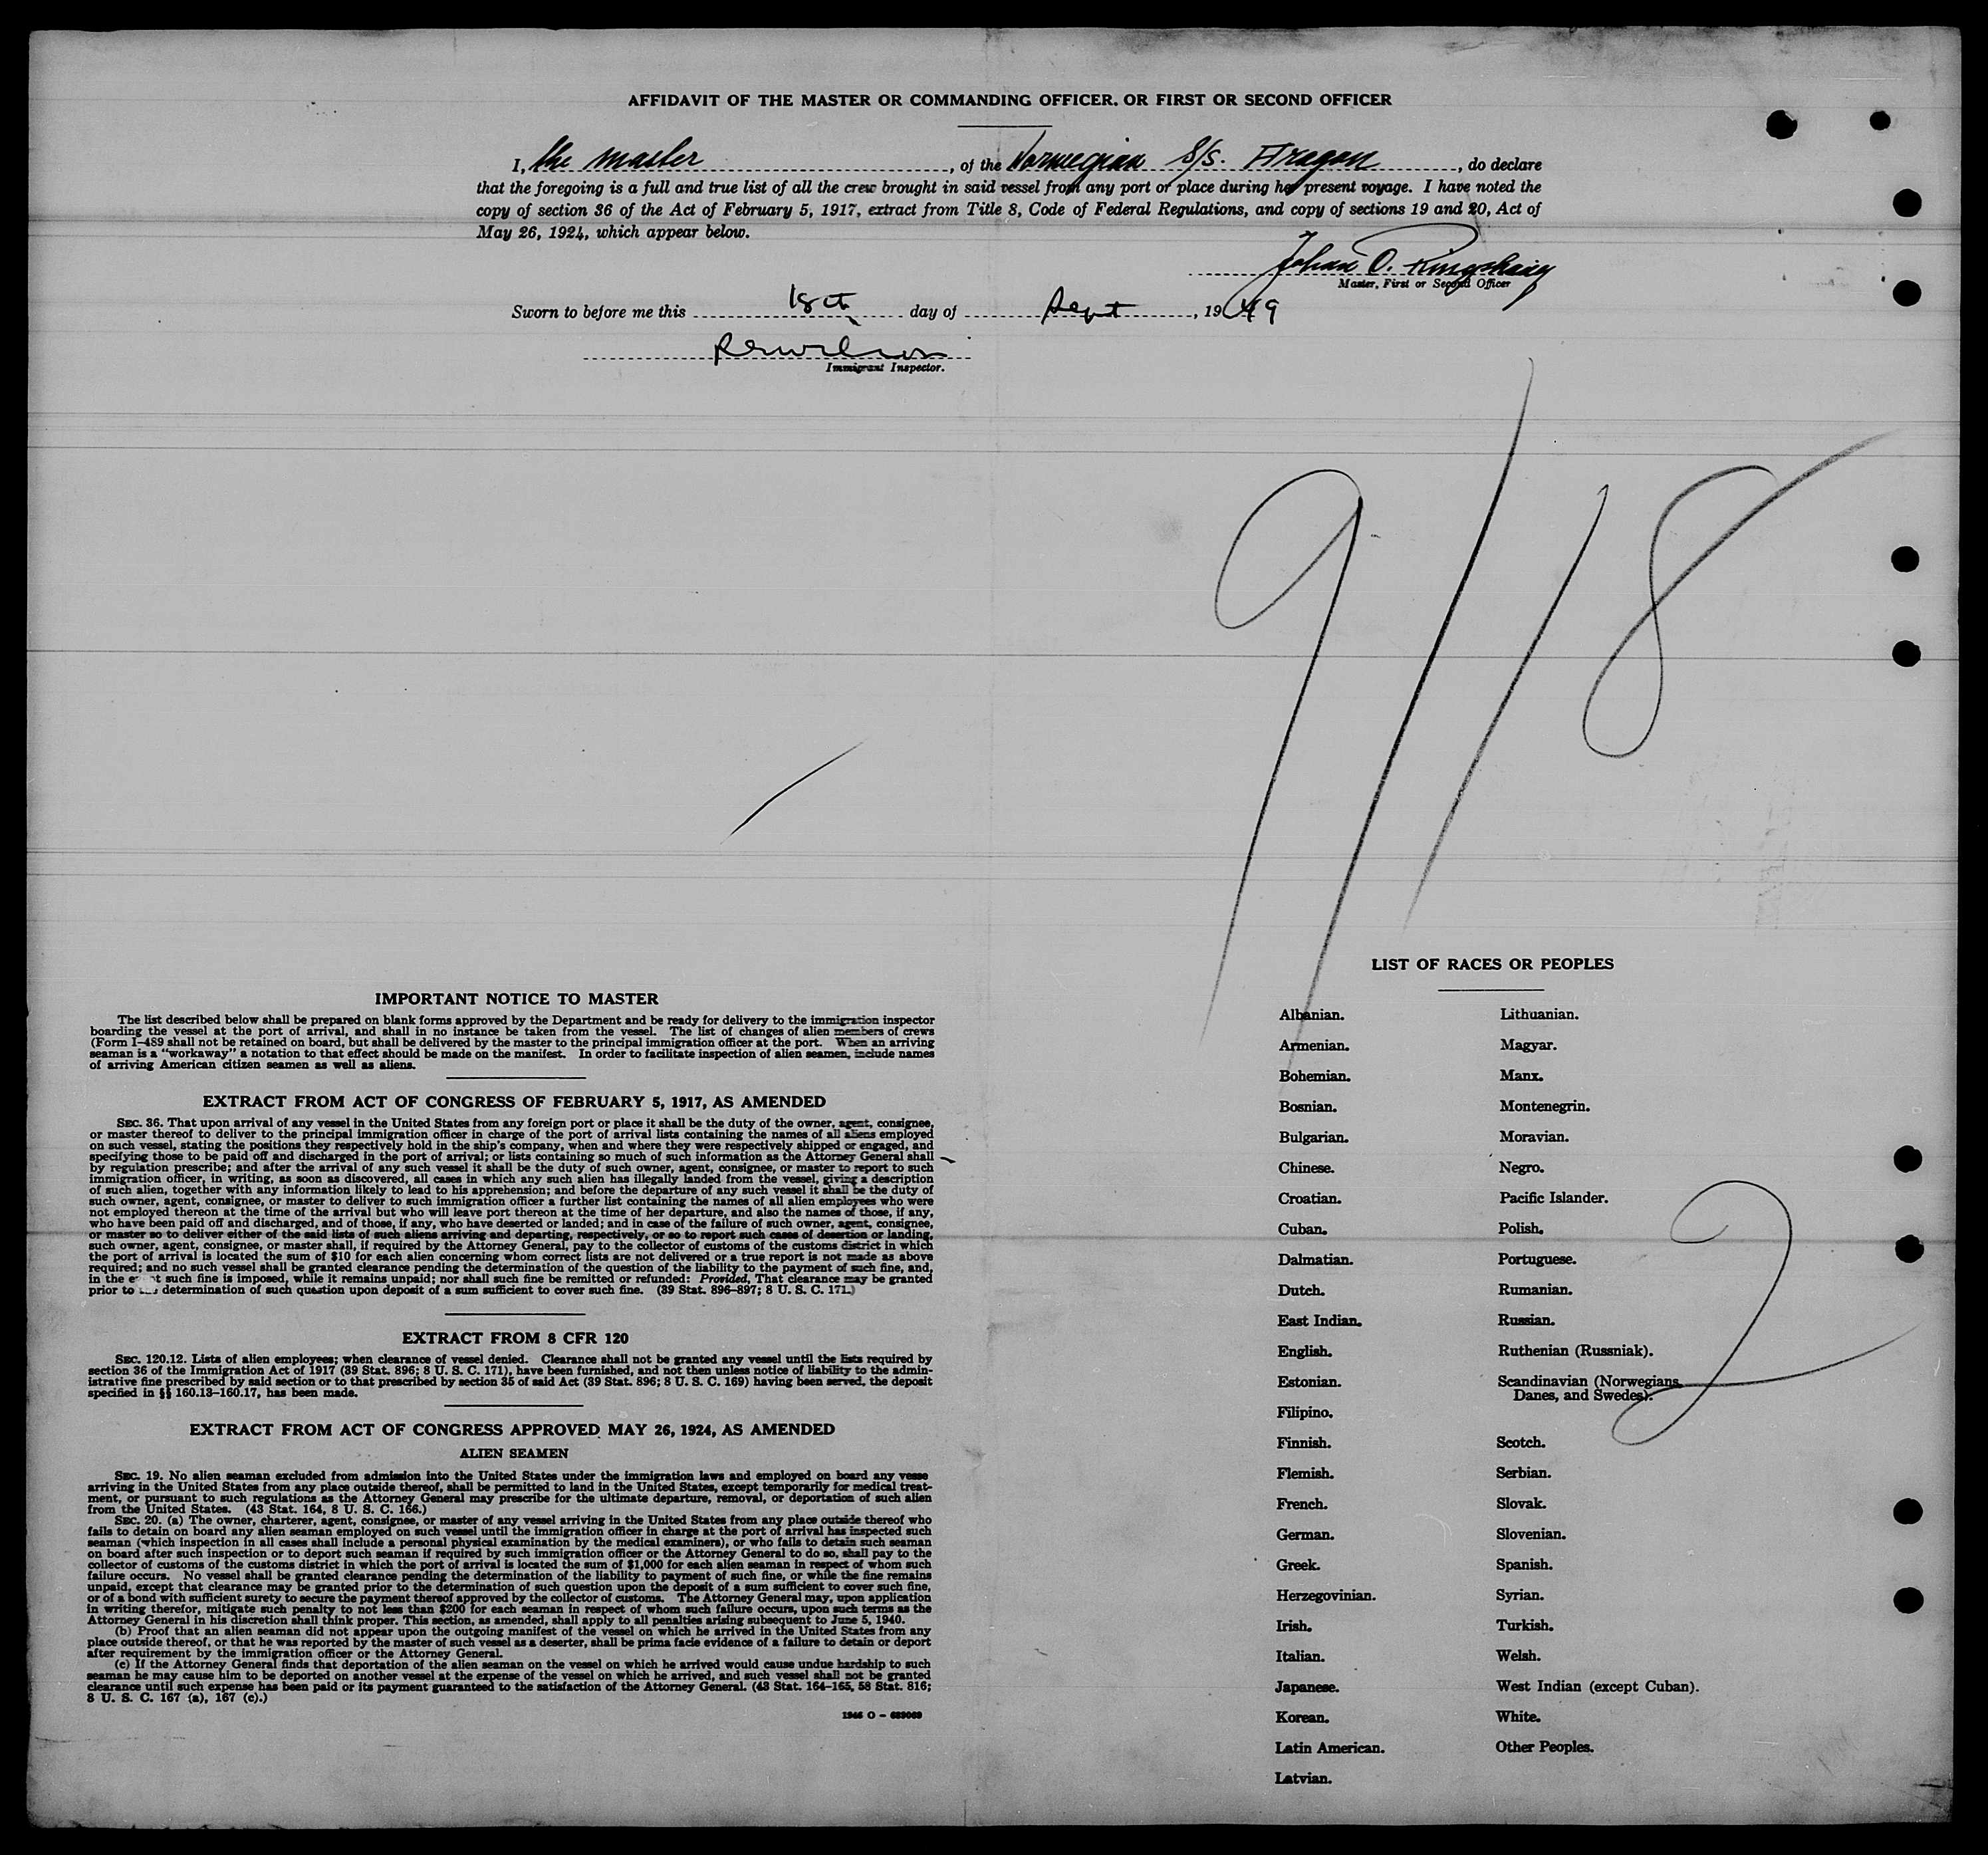 AFFIDAVIT OF THE MASTER OR COMMANDING OFFICER, OR FIRST OR SECOND OFFICER
I, the master, of the Norwegian S/s. Aragon, do declare
that the foregoing is a full and true list of all the crew brought in said vessel from any port or place during her present voyage. I have noted the
copy of section 36 of the Act of February 5, 1917, extract from Title 8, Code of Federal Regulations, and copy of sections 19 and 20, Act of
May 26, 1924, which appear below.
Johan O.
Master, First or Second Officer
Sworn to before me this 18th day of Sept, 1949
Immigrant Inspector.
9/18
IMPORTANT NOTICE TO MASTER
The list described below shall be prepared on blank forms approved by the Department and be ready for delivery to the immigration inspector
boarding the vessel at the port of arrival, and shall in no instance be taken from the vessel. The list of changes of alien members of crews
(Form I-489 shall not be retained on board, but shall be delivered by the master to the principal immigration officer at the port. When an arriving
seaman is a "workaway" a notation to that effect should be made on the manifest. In order to facilitate inspection of alien seamen, include names
of arriving American citizen seamen as well as aliens.
EXTRACT FROM ACT OF CONGRESS OF FEBRUARY 5, 1917, AS AMENDED
SEC. 36. That upon arrival of any vessel in the United States from any foreign port or place it shall be the duty of the owner, agent, consignee,
or master thereof to deliver to the principal immigration officer in charge of the port of arrival lists containing the names of all aliens employed
on such vessel, stating the positions they respectively hold in the ship's company, when and where they were respectively shipped or engaged, and
specifying those to be paid off and discharged in the port of arrival; or lists containing so much of such information as the Attorney General shall
by regulation prescribe; and after the arrival of any such vessel it shall be the duty of such owner, agent, consignee, or master to report to such
immigration officer, in writing, as soon as discovered, all cases in which any such alien has illegally landed from the vessel, giving a description
of such alien, together with any information likely to lead to his apprehension; and before the departure of any such vessel it shall be the duty of
such owner, agent, consignee, or master to deliver to such immigration officer a further list containing the names of all alien employees who were
not employed thereon at the time of the arrival but who will leave port thereon at the time of her departure, and also the names of those, if any,
who have been paid off and discharged, and of those, if any, who have deserted or landed; and in case of the failure of such owner, agent, consignee,
or master so to deliver either of the said lists of such aliens arriving and departing, respectively, or so to report such cases of desertion or landing,
such owner, agent, consignee, or master shall, if required by the Attorney General, pay to the collector of customs of the customs district in which
the port of arrival is located the sum of $10 for each alien concerning whom correct lists are not delivered or a true report is not made as above
required; and no such vessel shall be granted clearance pending the determination of the question of the liability to the payment of such fine, and,
in the such fine is imposed, while it remains unpaid; nor shall such fine be remitted or refunded: Provided, That clearance may be granted
prior to determination of such question upon deposit of a sum sufficient to cover such fine. (39 Stat. 896-897; 8 U. S. C. 171.)
EXTRACT FROM 8 CFR 120
SEC. 120.12. Lists of alien employees; when clearance of vessel denied. Clearance shall not be granted any vessel until the lists required by
section 36 of the Immigration Act of 1917 (39 Stat. 896; 8 U. S. C. 171), have been furnished, and not then unless notice of liability to the admin-
istrative fine prescribed by said section or to that prescribed by section 35 of said Act (39 Stat. 896; 8 U. S. C. 169) having been served, the deposit
specified in §§ 160.13-160.17, has been made.
EXTRACT FROM ACT OF CONGRESS APPROVED MAY 26, 1924, AS AMENDED
ALIEN SEAMEN
SEC. 19. No alien seaman excluded from admission into the United States under the immigration laws and employed on board any vesse
arriving in the United States from any place outside thereof, shall be permitted to land in the United States, except temporarily for medical treat-
ment, or pursuant to such regulations as the Attorney General may prescribe for the ultimate departure, removal, or deportation of such alien
from the United States. (43 Stat. 164, 8 U. S. C. 166.)
SEC. 20. (a) The owner, charterer, agent, consignee, or master of any vessel arriving in the United States from any place outside thereof who
fails to detain on board any alien seaman employed on such vessel until the immigration officer in charge at the port of arrival has inspected such
seaman (which inspection in all cases shall include a personal physical examination by the medical examiners), or who fails to detain such seaman
on board after such inspection or to deport such seaman if required by such immigration officer or the Attorney General to do so, shall pay to the
collector of customs of the customs district in which the port of arrival is located the sum of $1,000 for each alien seaman in respect of whom such
failure occurs. No vessel shall be granted clearance pending the determination of the liability to payment of such fine, or while the fine remains
unpaid, except that clearance may be granted prior to the determination of such question upon the deposit of a sum sufficient to cover such fine,
or of a bond with sufficient surety to secure the payment thereof approved by the collector of customs. The Attorney General may, upon application
in writing therefor, mitigate such penalty to not less than $200 for each seaman in respect of whom such failure occurs, upon such terms as the
Attorney General in his discretion shall think proper. This section, as amended, shall apply to all penalties arising subsequent to June 5, 1940.
(b) Proof that an alien seaman did not appear upon the outgoing manifest of the vessel on which he arrived in the United States from any
place outside thereof, or that he was reported by the master of such vessel as a deserter, shall be prima facie evidence of a failure to detain or deport
after requirement by the immigration officer or the Attorney General.
(c) If the Attorney General finds that deportation of the alien seaman on the vessel on which he arrived would cause undue hardship to such
seaman he may cause him to be deported on another vessel at the expense of the vessel on which he arrived, and such vessel shall not be granted
clearance until such expense has been paid or its payment guaranteed to the satisfaction of the Attorney General. (43 Stat. 164-165, 58 Stat. 816;
8 U. S. C. 167 (a), 167 (c).)
LIST OF RACES OR PEOPLES
Albanian.
Armenian.
Bohemian.
Bosnian.
Bulgarian.
Chinese.
Croatian.
Cuban.
Dalmatian.
Dutch.
East Indian.
English.
Estonian.
Filipino.
Finnish.
Flemish.
French.
German.
Greek.
Herzegovinian.
Irish.
Italian.
Japanese.
Korean.
Latin American.
Latvian.
Lithuanian.
Magyar.
Manx.
Montenegrin.
Moravian.
Negro.
Pacific Islander.
Polish.
Portuguese.
Rumanian.
Russian.
Ruthenian (Russniak).
Scandinavian (Norwegians,
Danes, and Swedes).
Scotch.
Serbian.
Slovak.
Slovenian.
Spanish.
Syrian.
Turkish.
Welsh.
West Indian (except Cuban).
White.
Other Peoples.
2